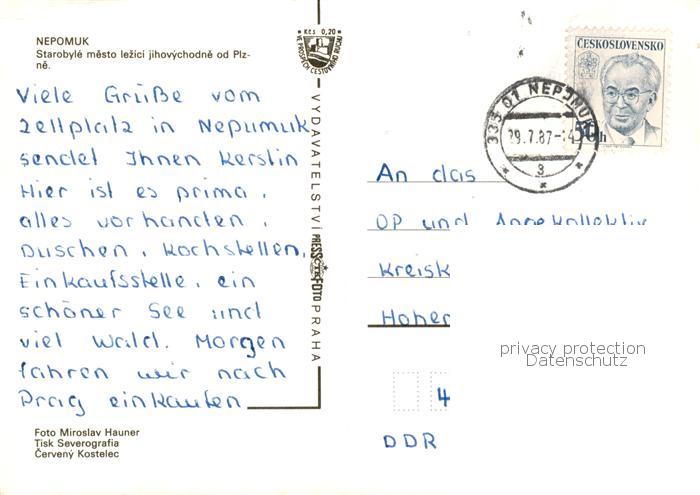 NEPOMUK
Starobylé město ležící jihovýchodně od Plz-
ně.
Viele Grüße vom
Zeltplatz in Nepumuk
sendet Ihnen Kerstin
Hier ist es prima,
alles vorhanden,
Duschen, Kochstellen,
Einkaufsstelle, ein
schöner See und
viel Wald. Morgen
fahren wir nach
Prag einkaufen
Foto Miroslav Hauner
Tisk Severografia
Červený Kostelec
Kčs 0,20
VE PROSPĚCH CESTOVNÍHO RUCHU
VYDAVATELSTVÍ PRESSFOTO PRAHA
ČESKOSLOVENSKO
50h
335 01 NEPOMUK
29.7.87-14
3
An das
OP und
Kreisk
Hoher
4
DDR
privacy protection
Datenschutz